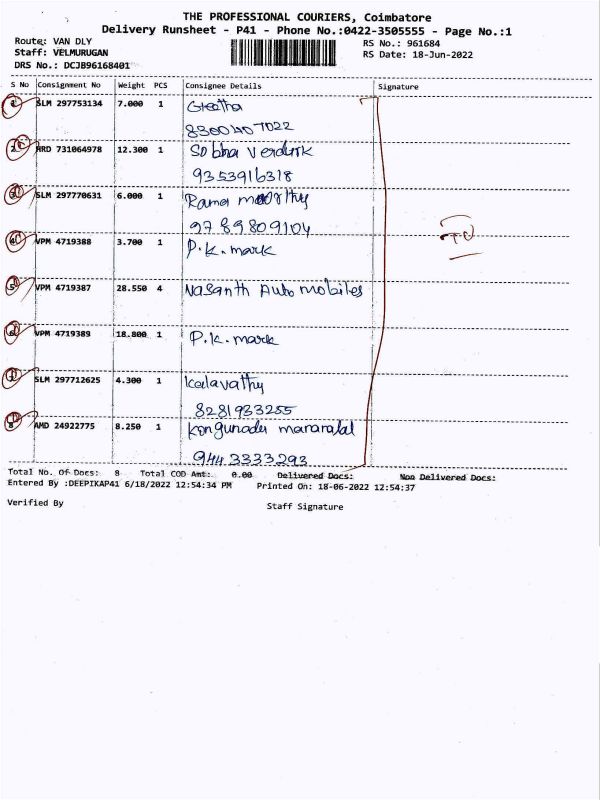 THE PROFESSIONAL COURIERS, Coimbatore
Delivery Runsheet - P41 - Phone No.:0422-3505555 - Page No.:1
Route: VAN DLY
RS No.: 961684
Staff: VELMURUGAN
RS Date: 18-Jun-2022
DRS No.: DCJB96168401
S No Consignment No Weight PCS Consignee Details Signature
1 SLM 297753134 7.000 1 Geetha
8300407022
2 HRD 731064978 12.300 1 Sobha
9353916318
3 SLM 297770631 6.000 1 Rama moorthy
9789809104
4 VPM 4719388 3.700 1 P.K. mark
5 VPM 4719387 28.550 4 Vasanth Auto mobiles
6 VPM 4719389 18.800 1 P.K. mark
7 SLM 297712625 4.300 1 Leelavathy
8281933255
8 AMD 24922775 8.250 1 Kongunadu
944 3333293
Total No. Of Docs: 8 Total COD Amt: 0.00 Delivered Docs: Non Delivered Docs:
Entered By :DEEPIKAP41 6/18/2022 12:54:34 PM Printed On: 18-06-2022 12:54:37
Verified By Staff Signature